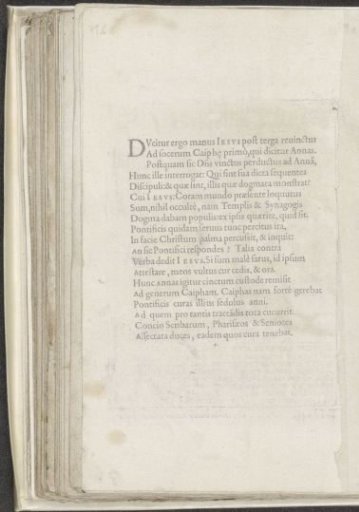 DVcitur ergo manus IESVS post terga reuinctus
Ad socerum Caiphę primò, qui dicitur Annas.
Postquam sic Dñs vinctus perductus ad Annã,
Hunc ille interrogat: Qui sint sua dicta sequentes
Discipuli: & quæ sint, illis quæ dogmata monstrat?
Cui IESVS: Coram mundo præsente loquutus
Sum, nihil occultè, nam Templis & Synagogis
Dogma dabam populis: ex ipsis quærite, quid sit.
Pontificis quidam seruus tunc percitus ira,
In facie Christum palma percussit, & inquit:
An sic Pontifici respondes? Talia contra
Verba dedit IESVS. Si sum malè fatus, id ipsum
Attestare, meos vultus cur cedis, & ora.
Hunc Annas igitur vinctum custode remisit
Ad generum Caipham. Caiphas nam fortè gerebat
Pontificis curas illius sedulus anni.
Ad quem pro tantis tractãdis tota cucurrit
Concio Scribarum, Phariseos & Seniores
Affectata duces, eadem quos cura tenebat.